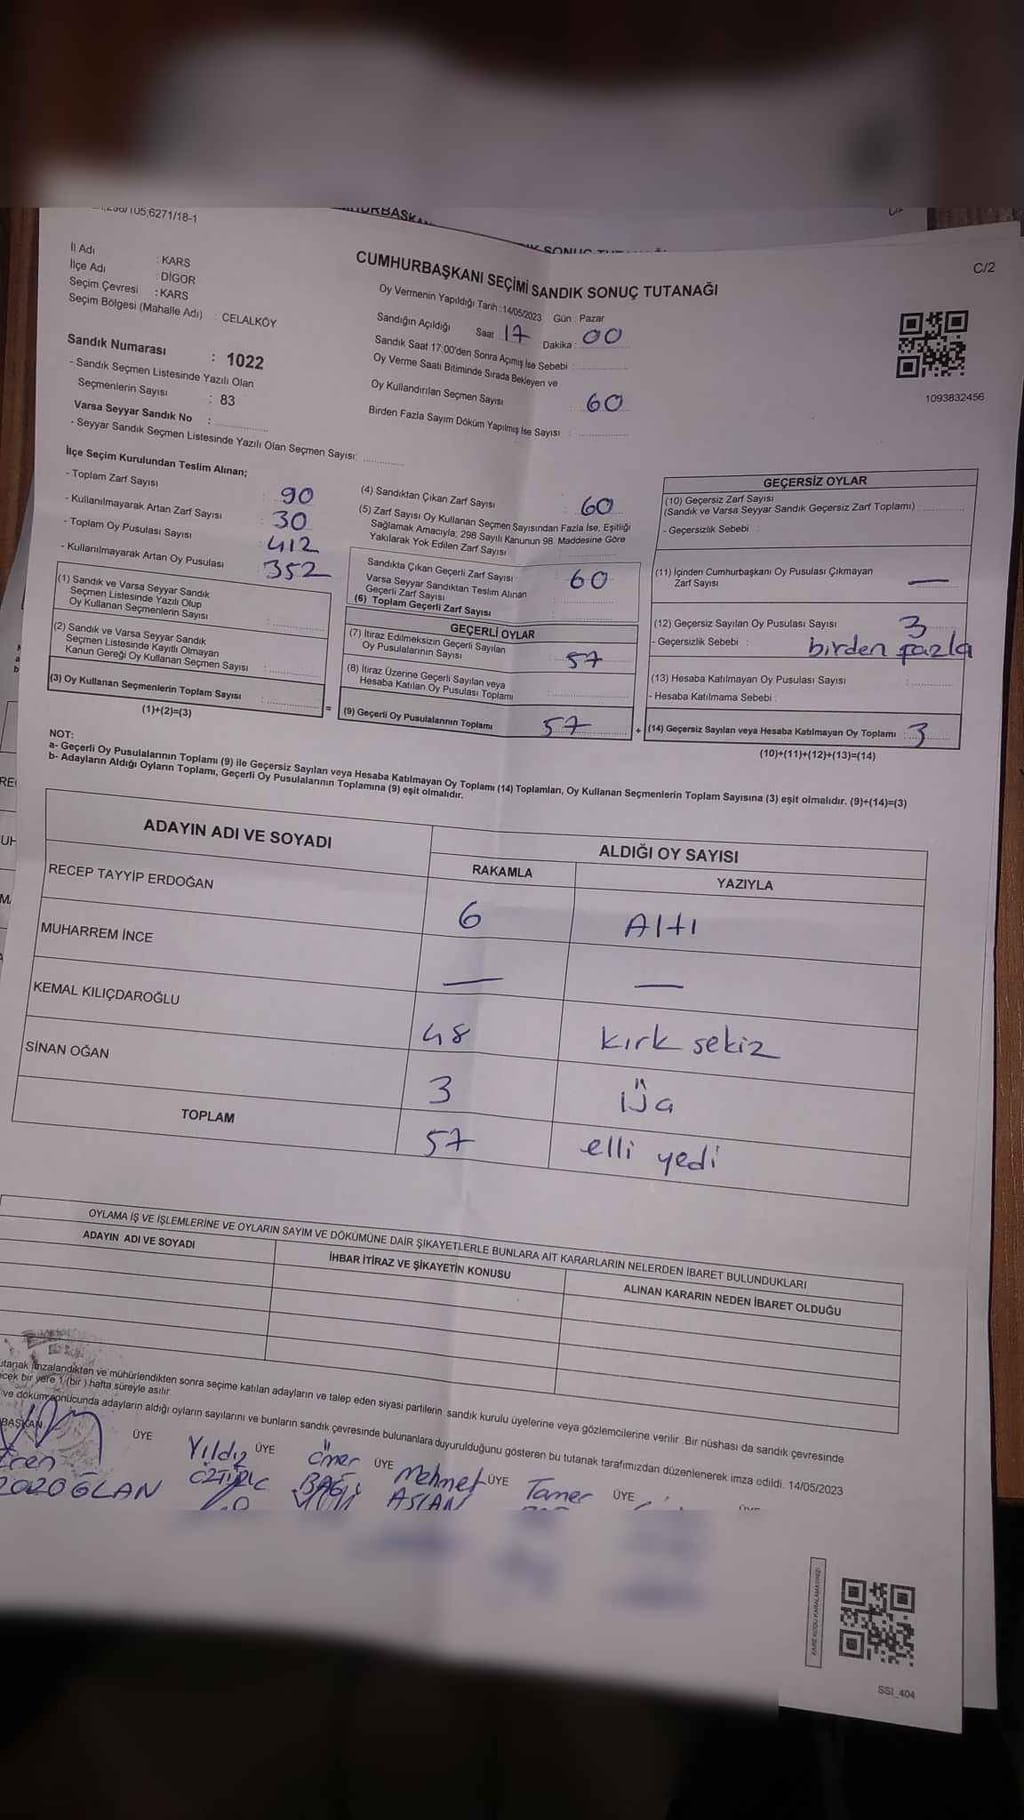 105;6271/18-1
C/2
İl Adı : KARS
İlçe Adı : DİGOR
Seçim Çevresi : KARS
Seçim Bölgesi (Mahalle Adı) : CELALKÖY
Sandık Numarası : 1022
- Sandık Seçmen Listesinde Yazılı Olan
Seçmenlerin Sayısı : 83
Varsa Seyyar Sandık No :
- Seyyar Sandık Seçmen Listesinde Yazılı Olan Seçmen Sayısı:
CUMHURBAŞKANI SEÇİMİ SANDIK SONUÇ TUTANAĞI
Oy Vermenin Yapıldığı Tarih :14/05/2023 Gün : Pazar
Sandığın Açıldığı Saat 17 Dakika : 00
Sandık Saat 17:00'den Sonra Açımış İse Sebebi :
Oy Verme Saati Bitiminde Sırada Bekleyen ve
Oy Kullandırılan Seçmen Sayısı : 60
Birden Fazla Sayım Döküm Yapılmış İse Sayısı :
1093832456
İlçe Seçim Kurulundan Teslim Alınan;
- Toplam Zarf Sayısı : 90
- Kullanılmayarak Artan Zarf Sayısı : 30
- Toplam Oy Pusulası Sayısı : 412
- Kullanılmayarak Artan Oy Pusulası : 352
(1) Sandık ve Varsa Seyyar Sandık
Seçmen Listesinde Yazılı Olup
Oy Kullanan Seçmenlerin Sayısı :
(2) Sandık ve Varsa Seyyar Sandık
Seçmen Listesinde Kayıtlı Olmayan
Kanun Gereği Oy Kullanan Seçmen Sayısı :
(3) Oy Kullanan Seçmenlerin Toplam Sayısı :
(1)+(2)=(3)
(4) Sandıktan Çıkan Zarf Sayısı : 60
(5) Zarf Sayısı Oy Kullanan Seçmen Sayısından Fazla İse, Eşitliği
Sağlamak Amacıyla; 298 Sayılı Kanunun 98. Maddesine Göre
Yakılarak Yok Edilen Zarf Sayısı
Sandıkta Çıkan Geçerli Zarf Sayısı : 60
Varsa Seyyar Sandıktan Teslim Alınan
Geçerli Zarf Sayısı
(6) Toplam Geçerli Zarf Sayısı
GEÇERLİ OYLAR
(7) İtiraz Edilmeksizin Geçerli Sayılan
Oy Pusulalarının Sayısı : 57
(8) İtiraz Üzerine Geçerli Sayılan veya
Hesaba Katılan Oy Pusulası Toplamı
= (9) Geçerli Oy Pusulalarının Toplamı 57
GEÇERSİZ OYLAR
(10) Geçersiz Zarf Sayısı
(Sandık ve Varsa Seyyar Sandık Geçersiz Zarf Toplamı)
- Geçersizlik Sebebi :
(11) İçinden Cumhurbaşkanı Oy Pusulası Çıkmayan
Zarf Sayısı —
(12) Geçersiz Sayılan Oy Pusulası Sayısı 3
- Geçersizlik Sebebi : birden fazla
(13) Hesaba Katılmayan Oy Pusulası Sayısı
- Hesaba Katılmama Sebebi :
+ (14) Geçersiz Sayılan veya Hesaba Katılmayan Oy Toplamı : 3
(10)+(11)+(12)+(13)=(14)
NOT:
a- Geçerli Oy Pusulalarının Toplamı (9) ile Geçersiz Sayılan veya Hesaba Katılmayan Oy Toplamı (14) Toplamları, Oy Kullanan Seçmenlerin Toplam Sayısına (3) eşit olmalıdır. (9)+(14)=(3)
b- Adayların Aldığı Oyların Toplamı, Geçerli Oy Pusulalarının Toplamına (9) eşit olmalıdır.
ADAYIN ADI VE SOYADI
ALDIĞI OY SAYISI
RAKAMLA YAZIYLA
RECEP TAYYİP ERDOĞAN 6 Altı
MUHARREM İNCE — —
KEMAL KILIÇDAROĞLU 48 kırk sekiz
SİNAN OĞAN 3 üç
TOPLAM 57 elli yedi
OYLAMA İŞ VE İŞLEMLERİNE VE OYLARIN SAYIM VE DÖKÜMÜNE DAİR ŞİKAYETLERLE BUNLARA AİT KARARLARIN NELERDEN İBARET BULUNDUKLARI
ADAYIN ADI VE SOYADI
İHBAR İTİRAZ VE ŞİKAYETİN KONUSU
ALINAN KARARIN NEDEN İBARET OLDUĞU
utanak imzalandıkten ve mühürlendikten sonra seçime katılan adayların ve talep eden siyasi partilerin sandık kurulu üyelerine veya gözlemcilerine verilir. Bir nüshası da sandık çevresinde
bir yere 1 (bir) hafta süreyle asılır.
ve döküm sonucunda adayların aldığı oyların sayılarını ve bunların sandık çevresinde bulunanlara duyurulduğunu gösteren bu tutanak tarafımızdan düzenlenerek imza edildi. 14/05/2023
BAŞKAN ÜYE ÜYE ÜYE ÜYE ÜYE
Yıldız Ömer Mehmet Taner
ASLAN
SSİ_404